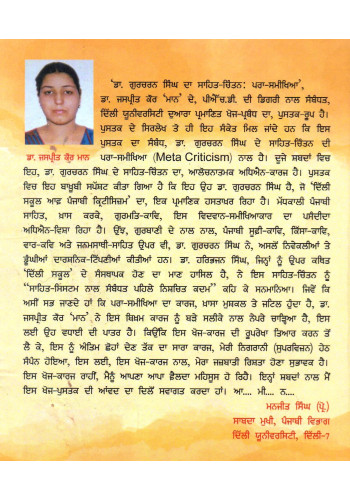 'ਡਾ. ਗੁਰਚਰਨ ਸਿੰਘ ਦਾ ਸਾਹਿਤ-ਚਿੰਤਨ: ਪਰਾ-ਸਮੀਖਿਆ',
ਡਾ. ਜਸਪ੍ਰੀਤ ਕੌਰ 'ਮਾਨ' ਦੇ, ਪੀਐੱਚ.ਡੀ. ਦੀ ਡਿਗਰੀ ਨਾਲ ਸੰਬੰਧਤ,
ਦਿੱਲੀ ਯੂਨੀਵਰਸਿਟੀ ਦੁਆਰਾ ਪ੍ਰਮਾਣਿਤ ਖੋਜ-ਪ੍ਰਬੰਧ ਦਾ, ਪੁਸਤਕ-ਰੂਪ ਹੈ।
ਪੁਸਤਕ ਦੇ ਸਿਰਲੇਖ ਤੋਂ ਹੀ ਇਹ ਸੰਕੇਤ ਮਿਲ ਜਾਂਦੇ ਹਨ ਕਿ ਇਸ
ਪੁਸਤਕ ਦਾ ਸੰਬੰਧ, ਡਾ. ਗੁਰਚਰਨ ਸਿੰਘ ਦੇ ਸਾਹਿਤ-ਚਿੰਤਨ ਦੀ
ਡਾ. ਜਸਪ੍ਰੀਤ ਕੌਰ ਮਾਨ
ਪਰਾ-ਸਮੀਖਿਆ (Meta Criticism) ਨਾਲ ਹੈ। ਦੂਜੇ ਸ਼ਬਦਾਂ ਵਿਚ
ਇਹ, ਡਾ. ਗੁਰਚਰਨ ਸਿੰਘ ਦੇ ਸਾਹਿਤ-ਚਿੰਤਨ ਦਾ, ਆਲੋਚਨਾਤਮਕ ਅਧਿਐਨ-ਕਾਰਜ ਹੈ। ਪੁਸਤਕ
ਵਿਚ ਇਹ ਬਾਖੂਬੀ ਸਪੱਸ਼ਟ ਕੀਤਾ ਗਿਆ ਹੈ ਕਿ ਇਹ ਉਹ ਡਾ. ਗੁਰਚਰਨ ਸਿੰਘ ਹੈ, ਜੋ 'ਦਿੱਲੀ
ਸਕੂਲ ਆਫ਼ ਪੰਜਾਬੀ ਕ੍ਰਿਟੀਸਿਜ਼ਮ' ਦਾ, ਇਕ ਪ੍ਰਮਾਣਿਕ ਹਸਤਾਖਰ ਰਿਹਾ ਹੈ। ਮੱਧਕਾਲੀ ਪੰਜਾਬੀ
ਸਾਹਿਤ, ਖ਼ਾਸ ਕਰਕੇ, ਗੁਰਮਤਿ-ਕਾਵਿ, ਇਸ ਵਿਦਵਾਨ-ਸਮੀਖਿਆਕਾਰ ਦਾ ਪਸੰਦੀਦਾ
ਅਧਿਐਨ-ਵਿਸ਼ਾ ਰਿਹਾ ਹੈ। ਉਂਝ, ਗੁਰਬਾਣੀ ਦੇ ਨਾਲ ਨਾਲ, ਪੰਜਾਬੀ ਸੂਫੀ-ਕਾਵਿ, ਕਿੱਸਾ-ਕਾਵਿ,
ਵਾਰ-ਕਵਿ ਅਤੇ ਜਨਮਸਾਖੀ-ਸਾਹਿਤ ਉਪਰ ਵੀ, ਡਾ. ਗੁਰਚਰਨ ਸਿੰਘ ਨੇ, ਅਸਲੋਂ ਨਿਵੇਕਲੀਆਂ ਤੇ
ਡੂੰਘੀਆਂ ਦਾਰਸ਼ਨਿਕ-ਟਿੱਪਣੀਆਂ ਕੀਤੀਆਂ ਹਨ। ਡਾ. ਹਰਿਭਜਨ ਸਿੰਘ, ਜਿਨ੍ਹਾਂ ਨੂੰ ਉਪਰ ਕਥਿਤ
'ਦਿੱਲੀ ਸਕੂਲ' ਦੇ ਸੰਸਥਾਪਕ ਹੋਣ ਦਾ ਮਾਣ ਹਾਸਿਲ ਹੈ, ਨੇ ਇਸ ਸਾਹਿਤ-ਚਿੰਤਨ ਨੂੰ
"ਸਾਹਿਤ-ਸਿਸਟਮ ਨਾਲ ਸੰਬੰਧਤ ਪਹਿਲੇ ਨਿਸ਼ਚਿਤ ਕਦਮ" ਕਹਿ ਕੇ ਸਨਮਾਨਿਆ। ਜਿਵੇਂ ਕਿ
ਅਸੀਂ ਸਭ ਜਾਣਦੇ ਹਾਂ ਕਿ ਪਰਾ-ਸਮੀਖਿਆ ਦਾ ਕਾਰਜ, ਖ਼ਾਸਾ ਮੁਸ਼ਕਲ ਤੇ ਜਟਿਲ ਹੁੰਦਾ ਹੈ, ਡਾ.
ਜਸਪ੍ਰੀਤ ਕੌਰ 'ਮਾਨ' ਨੇ ਇਸ ਬਿਖ਼ਮ ਕਾਰਜ ਨੂੰ ਬੜੇ ਸਲੀਕੇ ਨਾਲ ਨੇਪਰੇ ਚਾੜ੍ਹਿਆ ਹੈ, ਇਸ
ਲਈ ਉਹ ਵਧਾਈ ਦੀ ਪਾਤਰ ਹੈ। ਕਿਉਂਕਿ ਇਸ ਖੋਜ-ਕਾਰਜ ਦੀ ਰੂਪਰੇਖਾ ਤਿਆਰ ਕਰਨ ਤੋਂ
ਲੈ ਕੇ, ਇਸ ਨੂੰ ਅੰਤਿਮ ਛੋਹਾਂ ਦੇਣ ਤੱਕ ਦਾ ਸਾਰਾ ਕਾਰਜ, ਮੇਰੀ ਨਿਗਰਾਨੀ (ਸੁਪਰਵਿਜ਼ਨ) ਹੇਠ
ਸੰਪੰਨ ਹੋਇਆ, ਇਸ ਲਈ, ਇਸ ਖੋਜ-ਕਾਰਜ ਨਾਲ, ਮੇਰਾ ਜਜ਼ਬਾਤੀ ਰਿਸ਼ਤਾ ਹੋਣਾ ਸੁਭਾਵਕ ਹੈ।
ਇਸ ਖੋਜ-ਕਾਰਜ ਰਾਹੀਂ, ਮੈਨੂੰ ਆਪਣਾ ਆਪਾ ਫੈਲਦਾ ਮਹਿਸੂਸ ਹੋ ਰਿਹੈ। ਇਨ੍ਹਾਂ ਸ਼ਬਦਾਂ ਨਾਲ ਮੈਂ
ਇਸ ਖੋਜ-ਪੁਸਤਕ ਦੀ ਆਵੰਦ ਦਾ ਦਿਲੋਂ ਸਵਾਗਤ ਕਰਦਾ ਹਾਂ। ਆ.... ਮੀ.... ਨ....
ਮਨਜੀਤ ਸਿੰਘ (ਪ੍ਰੋ.)
ਸਾਬਕਾ ਮੁਖੀ, ਪੰਜਾਬੀ ਵਿਭਾਗ
ਦਿੱਲੀ ਯੂਨੀਵਰਸਿਟੀ, ਦਿੱਲੀ-7